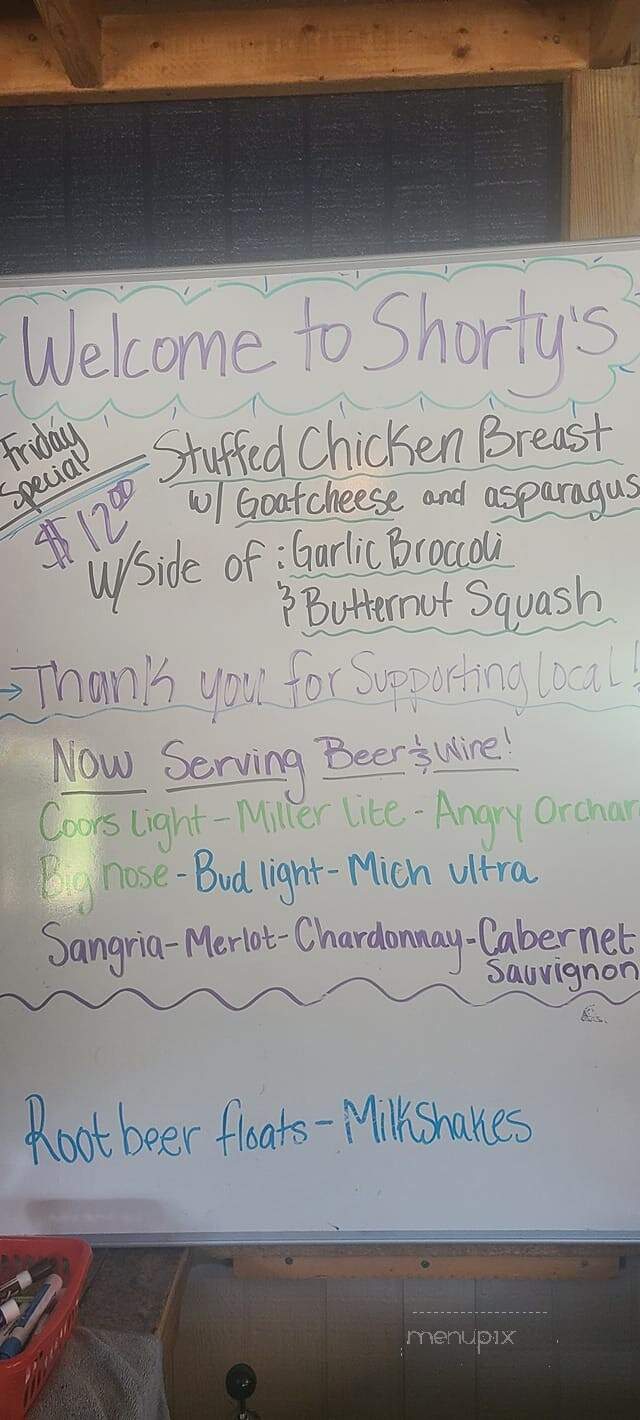 Welcome to Shorty's
Friday
Special
$12.00
Stuffed Chicken Breast
w/ Goatcheese and asparagus
W/Side of : Garlic Broccoli
& Butternut Squash
Thank you for Supporting local!
Now Serving Beer & Wine!
Coors Light - Miller lite - Angry Orchar
Big nose - Bud light - Mich ultra
Sangria - Merlot - Chardonnay - Cabernet
Sauvignon
Root beer floats - Milkshakes
menupix